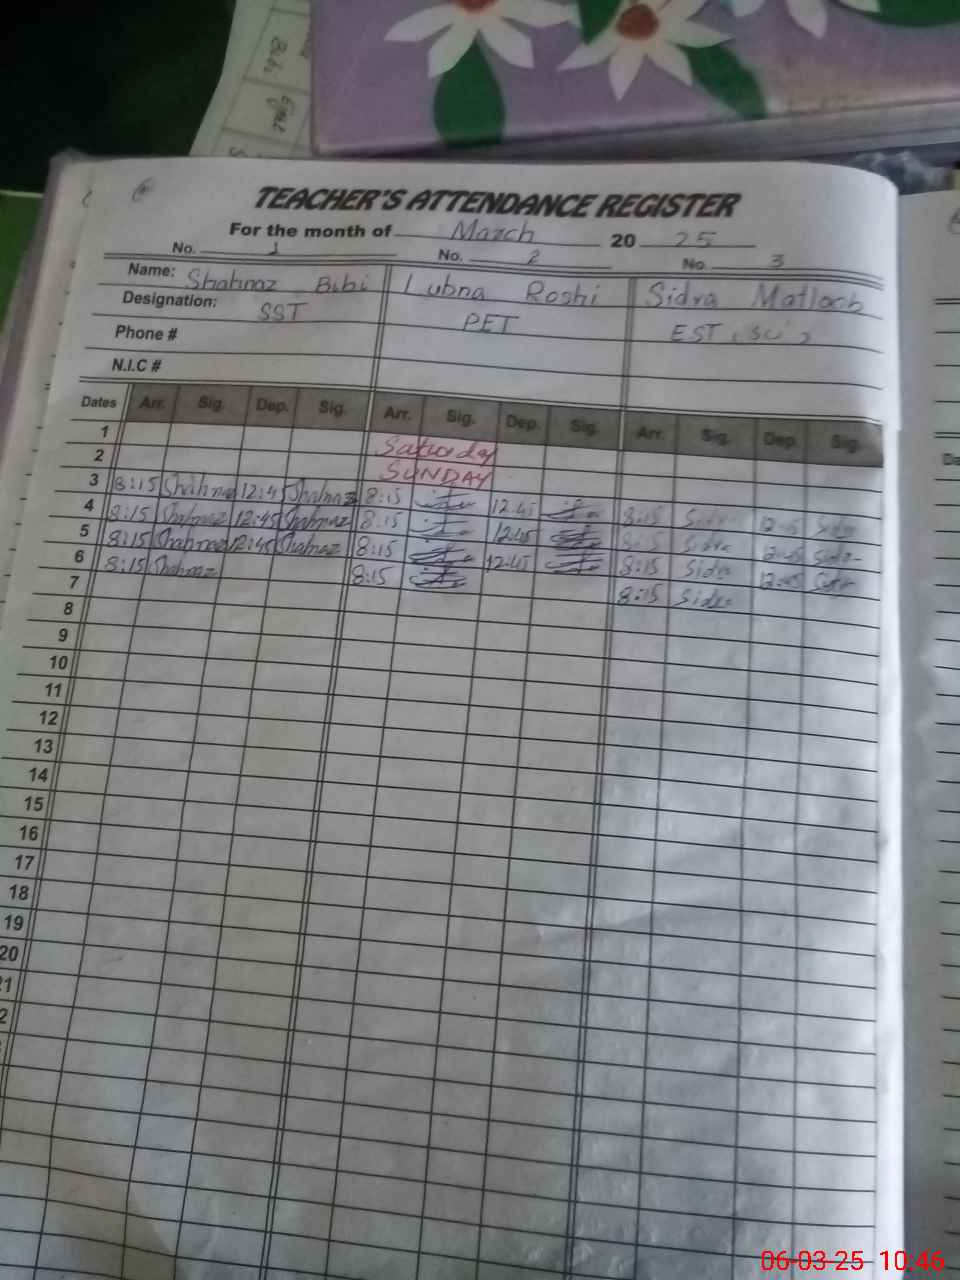 Bibi
TEACHER'S ATTENDANCE REGISTER
For the month of March 20 25
No. 1 No. 2 No 3
Name: Shahnaz Bibi Lubna Roshi Sidra Matloob
Designation: SST PET EST (Sci)
Phone #
N.I.C #
Dates Arr. Sig. Dep. Sig. Arr. Sig. Dep. Sig. Arr. Sig. Dep. Sig.
1 Saturday
2 SUNDAY
3 8:15 Shahnaz 12:45 Shahnaz 8:15 12:45 8:15 Sidra 12:45 Sidra
4 8:15 Shahnaz 12:45 Shahnaz 8:15 12:45 8:15 Sidra 12:45 Sidra
5 8:15 Shahnaz 12:45 Shahnaz 8:15 12:45 8:15 Sidra 12:45 Sidra
6 8:15 Shahnaz 8:15 8:15 Sidra
7
8
9
10
11
12
13
14
15
16
17
18
19
20
21
2
Da
06-03-25 10:46